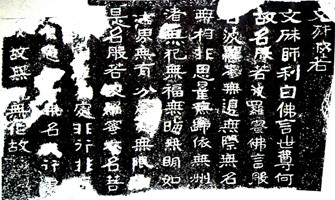 文殊般若
文殊師利白佛言世尊何
故名般若波羅蜜佛言般
若波羅蜜無邊無際無名
無相非思量無歸依無洲
渚無犯無福無晦無明如
法界無有分無限
是名般若波羅蜜亦名菩
處非行非
名非行
故無無作故